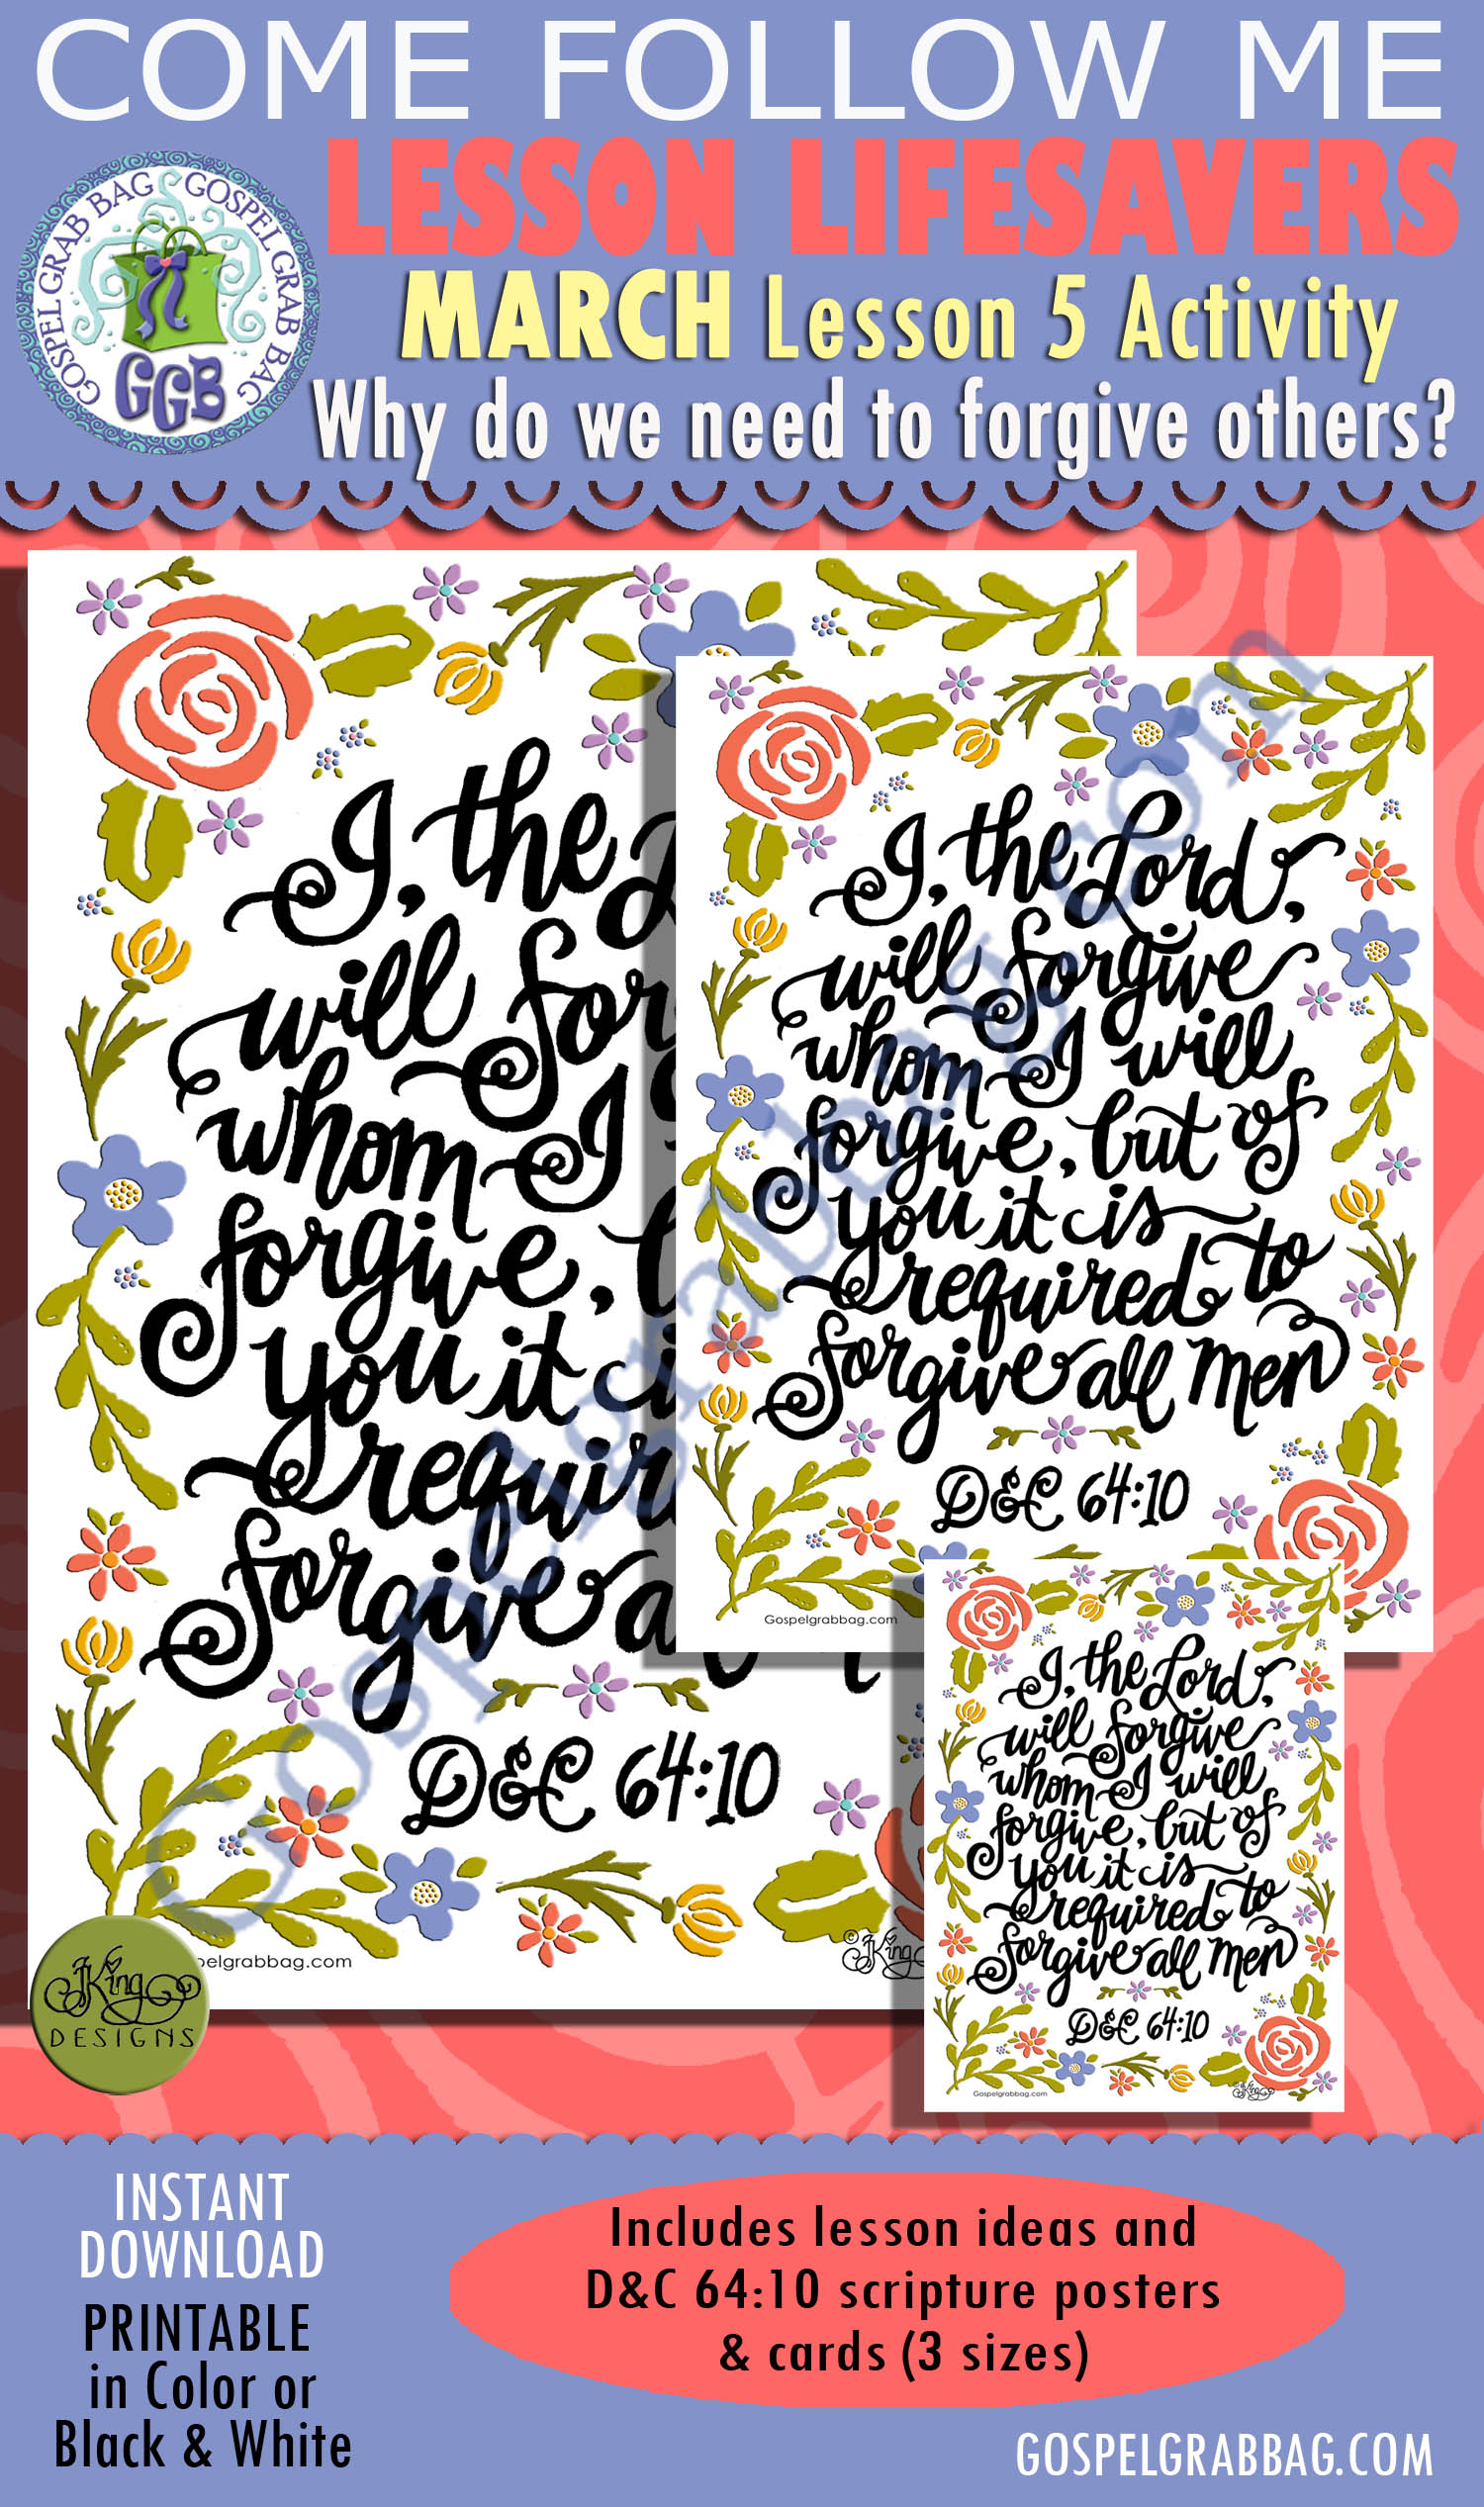 COME FOLLOW ME
LESSON LIFESAVERS
GOSPEL GRAB BAG GOSPEL GRAB BAG
GGB
MARCH Lesson 5 Activity
Why do we need to forgive others?
I, the
will for
whom I
forgive,
you it
requir
forgive a
D&C 64:10
pelgrabbag.com
© JKing
JKing
DESIGNS
I, the Lord,
will forgive
whom I will
forgive, but of
you it is
required to
forgive all men
D&C 64:10
Gospelgrabbag.com
I, the Lord,
will forgive
whom I will
forgive, but of
you it is
required to
forgive all men
D&C 64:10
Gospelgrabbag.com
© JKing
Gospelgrabbag.com
INSTANT
DOWNLOAD
PRINTABLE
in Color or
Black & White
Includes lesson ideas and
D&C 64:10 scripture posters
& cards (3 sizes)
GOSPELGRABBAG.COM